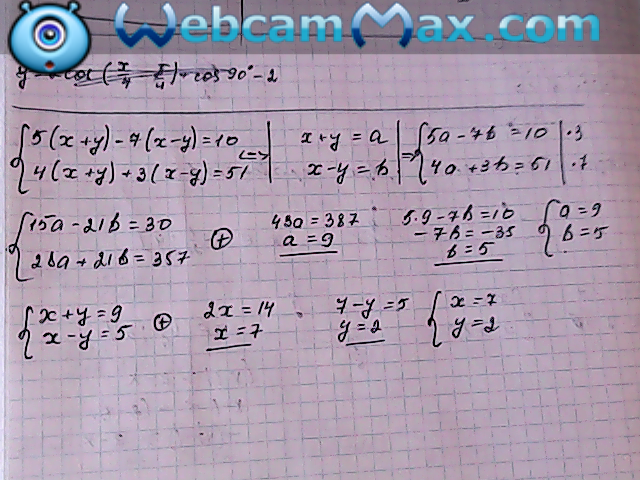 WebcamMax.com
cos(x/4 - π/4) + cos 90° - 2
{ 5(x+y) - 7(x-y) = 10
4(x+y) + 3(x-y) = 51 <=> | x+y = a
x-y = b | => { 5a - 7b = 10 | ·3
4a + 3b = 51 | ·7
{ 15a - 21b = 30
28a + 21b = 357 ⊕ 43a = 387
a = 9
5·9 - 7b = 10
-7b = -35
b = 5
{ a = 9
b = 5
{ x+y = 9
x-y = 5 ⊕ 2x = 14
x = 7
7-y = 5
y = 2
{ x = 7
y = 2